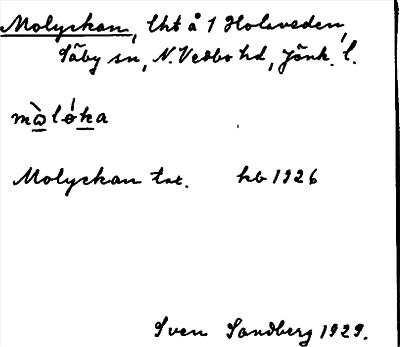 Molyckan, lht å 1 Holaveden,
Säby sn, N. Vedbo hd, Jönk. l.
mὼlóka
Molyckan txt. hb 1926
Sven Sandberg 1929.